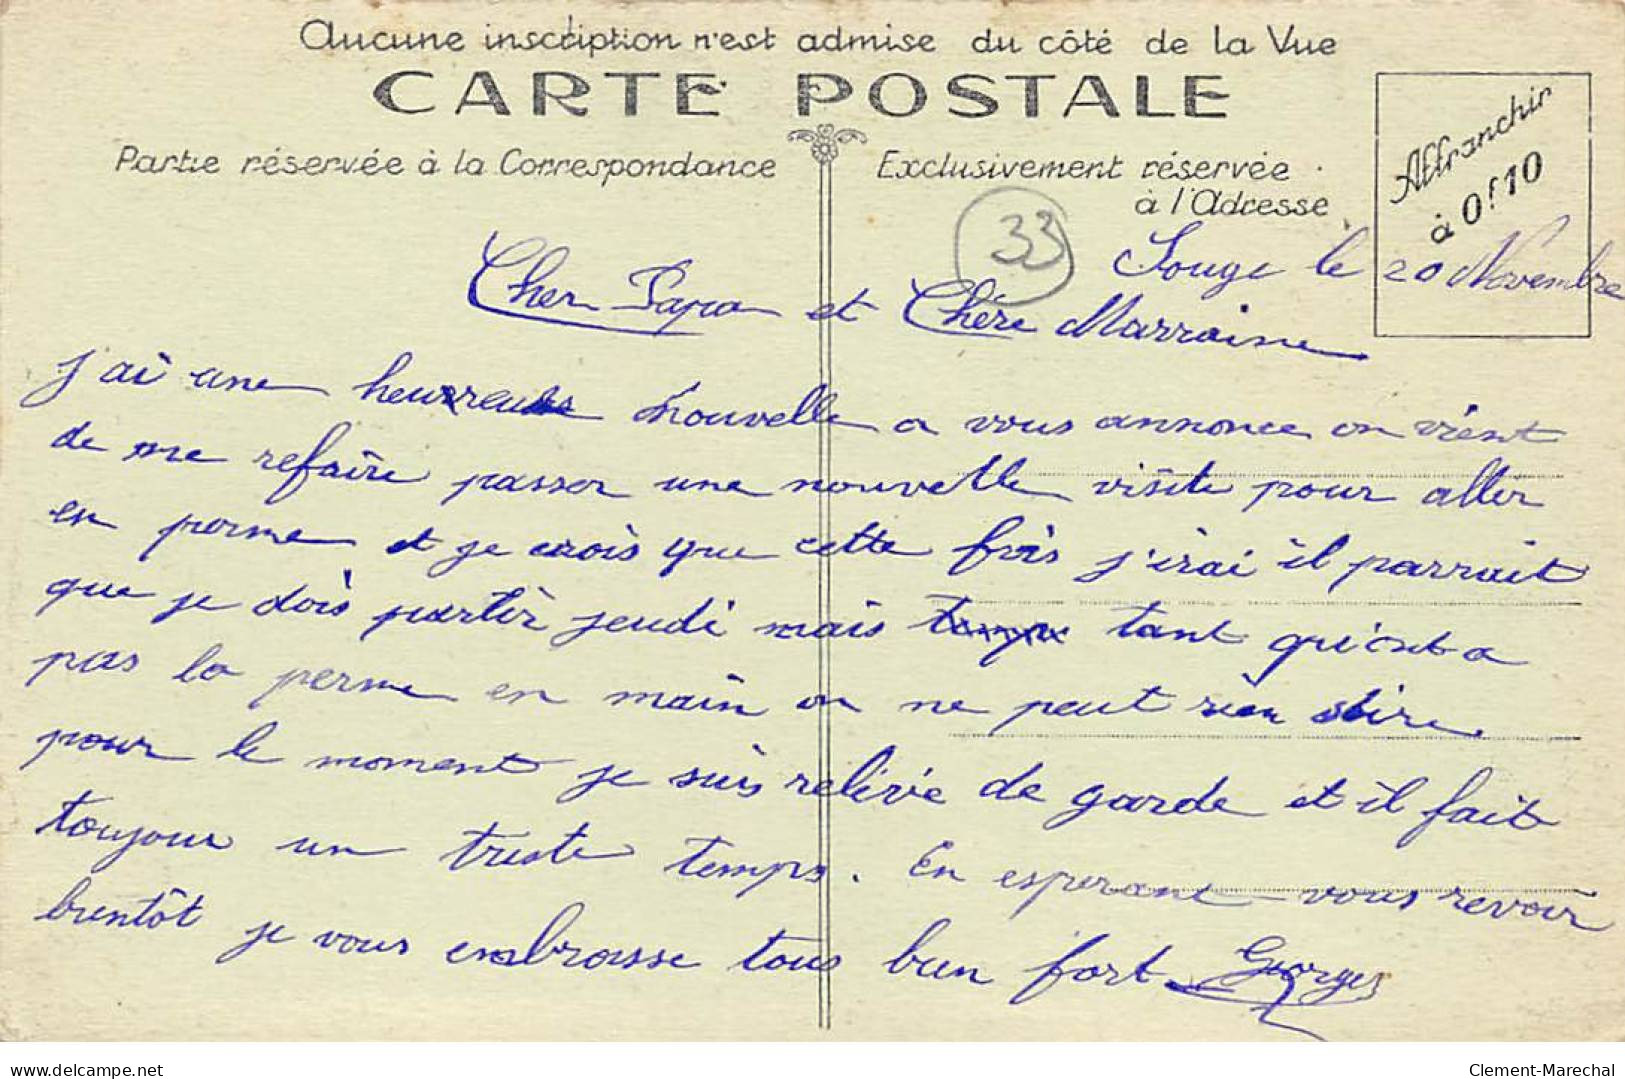 Aucune inscription n'est admise du côté de la Vue
CARTE POSTALE
Partie réservée à la Correspondance
Exclusivement réservée
à l'Adresse
Affranchir
à 0f10
33
Souge le 20 Novembre
Cher Papa et Chère Marraine
j'ai une heureuse nouvelle a vous annonce on vient
de me refaire passer une nouvelle visite pour aller
en perme et je crois que cette fois j'irai il parrait
que je dois partir jeudi mais tant qu'ont a
pas la perme en main on ne peut rien dire.
pour le moment je suis relévé de garde et il fait
toujour un triste temps. En esperant vous revoir
bientôt je vous embrasse tous bien fort Georges
delcampe.net
Clement-Marechal